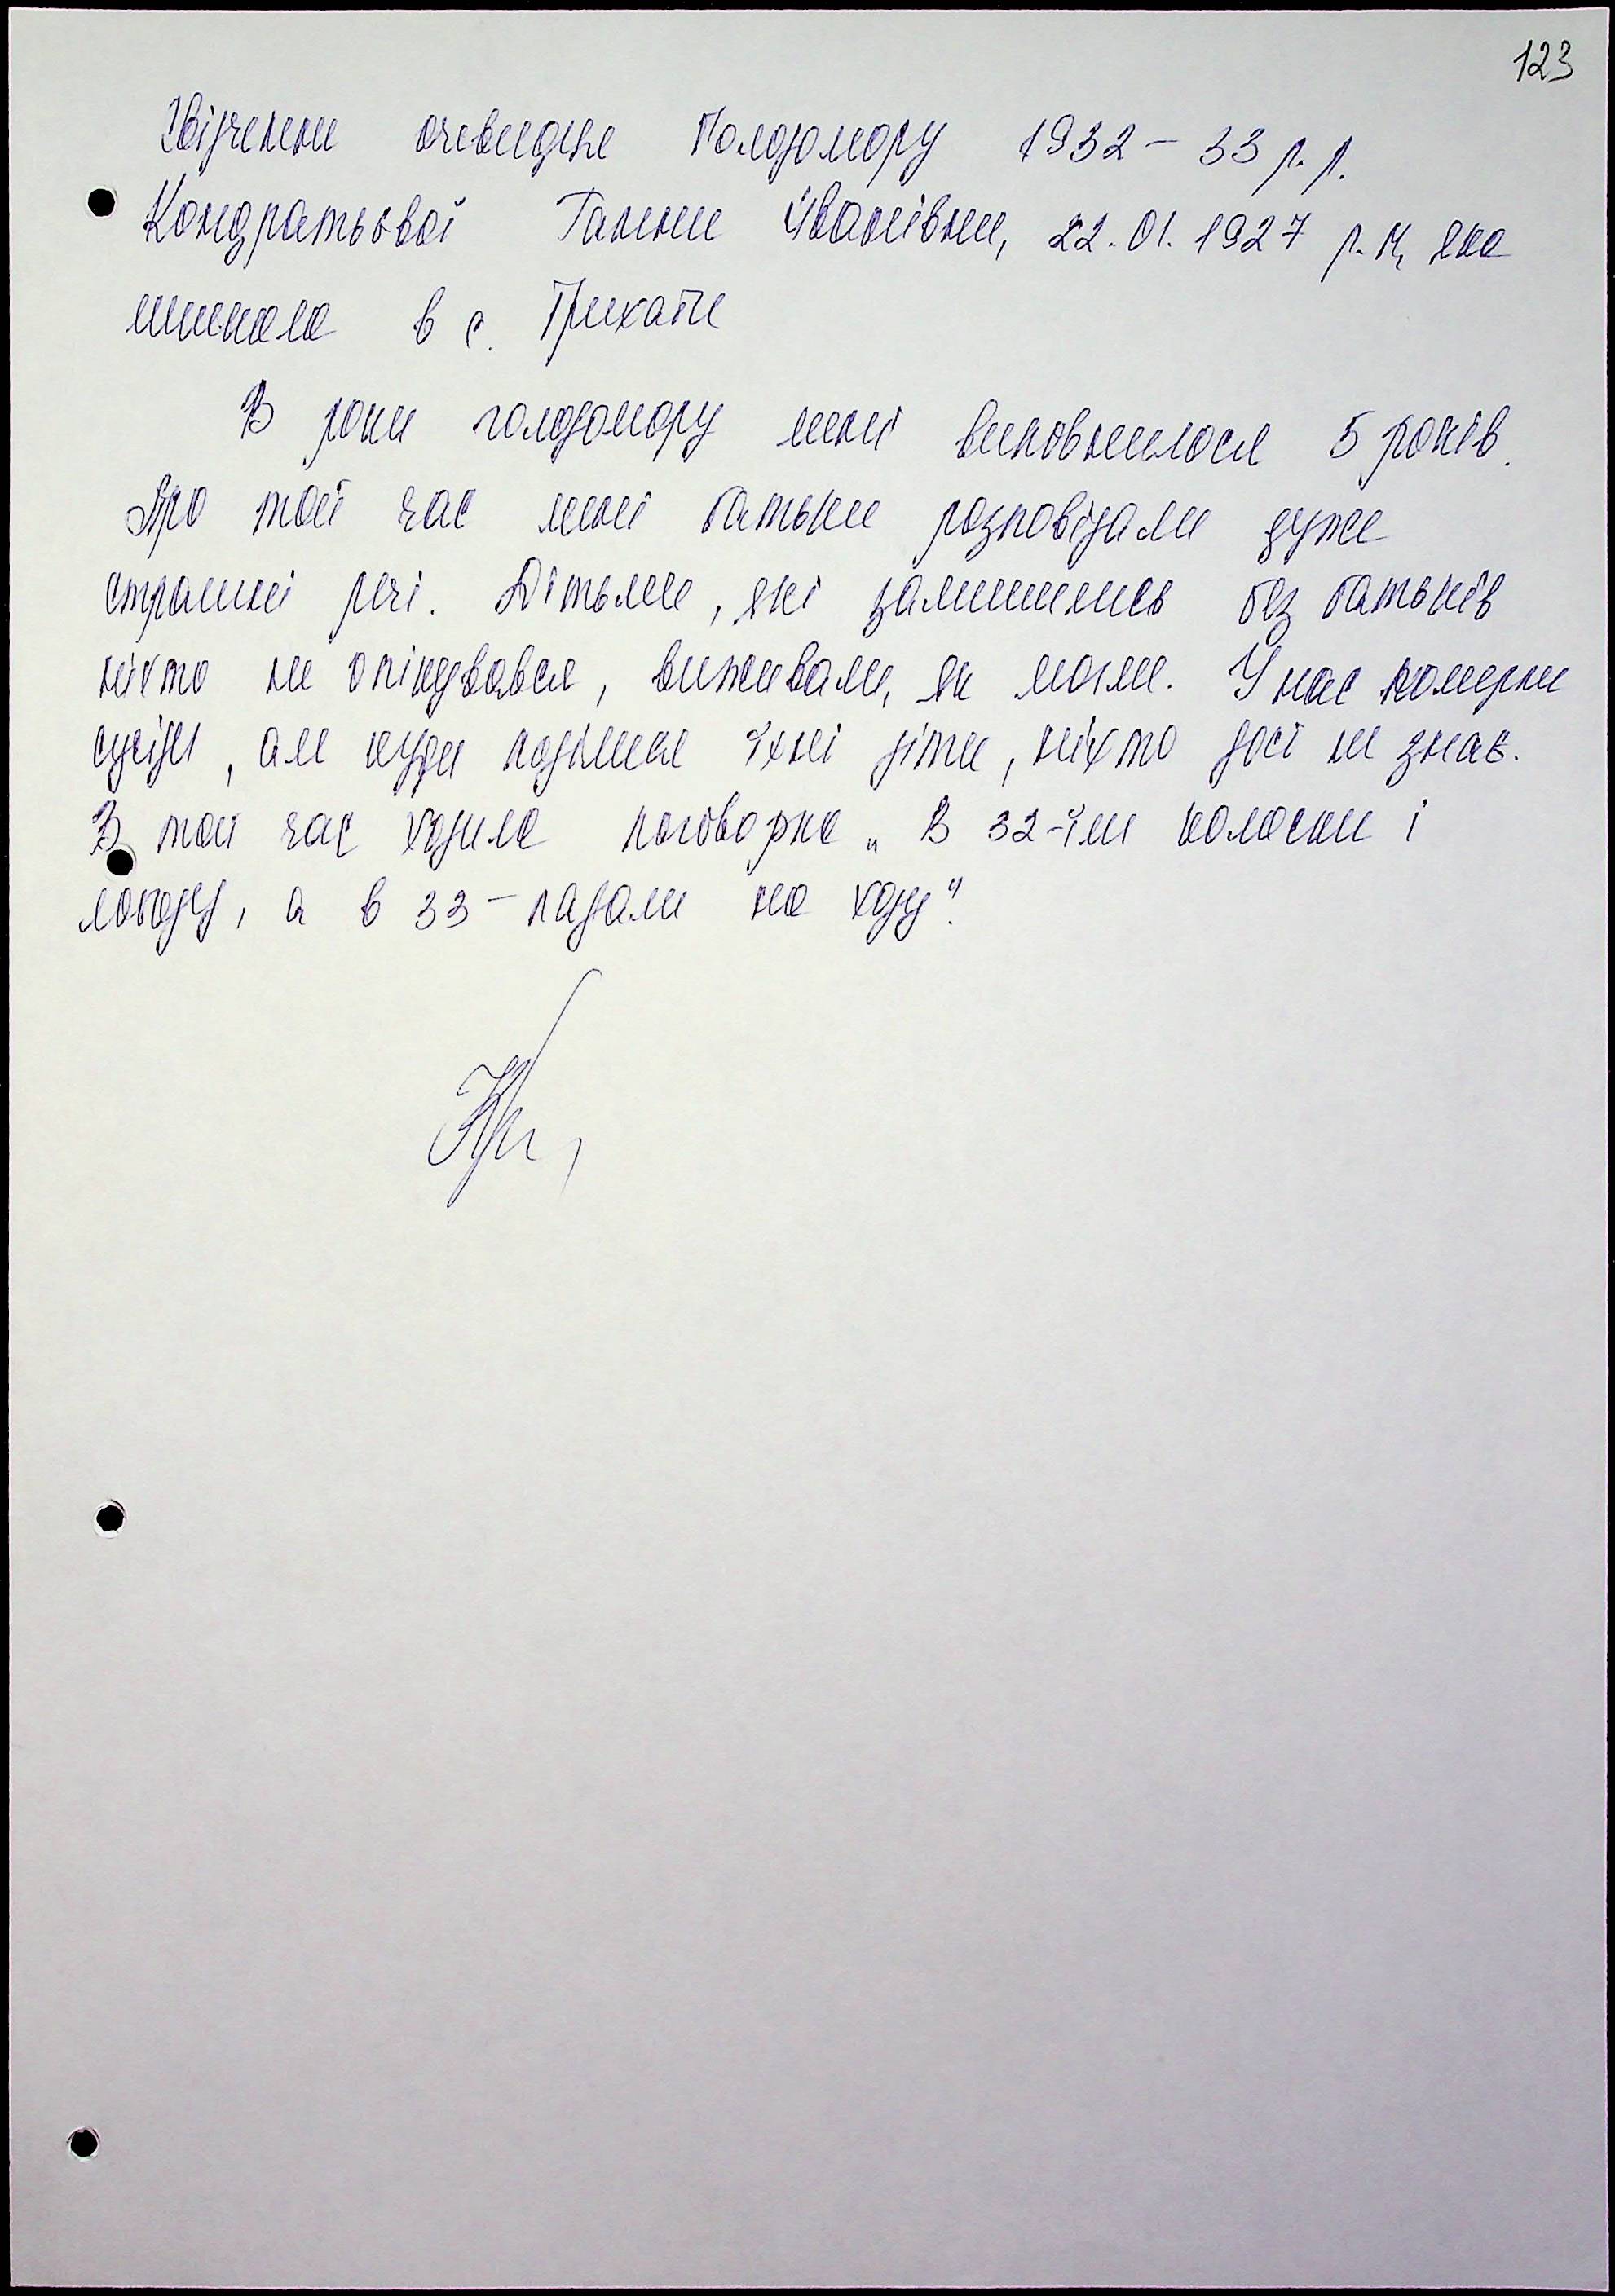 123
Свідчення очевидця Голодомору 1932 – 33 р.р.
Кондратьєвої Ганни Іванівни, 22.01.1927 р.н, яка
мешкала в с. Трихати
В роки голодомору мені виповнилося 5 років.
Про той час мені батьки розповідали дуже
страшні речі. Дітьми, які залишились без батьків
ніхто не опікувався, виживали, як могли. У нас померли
сусіди, але куди поділися їхні діти, ніхто досі не знає.
В той час ходила поговорка „ В 32-їли колоски і
лободу, а в 33 – падали на ходу".